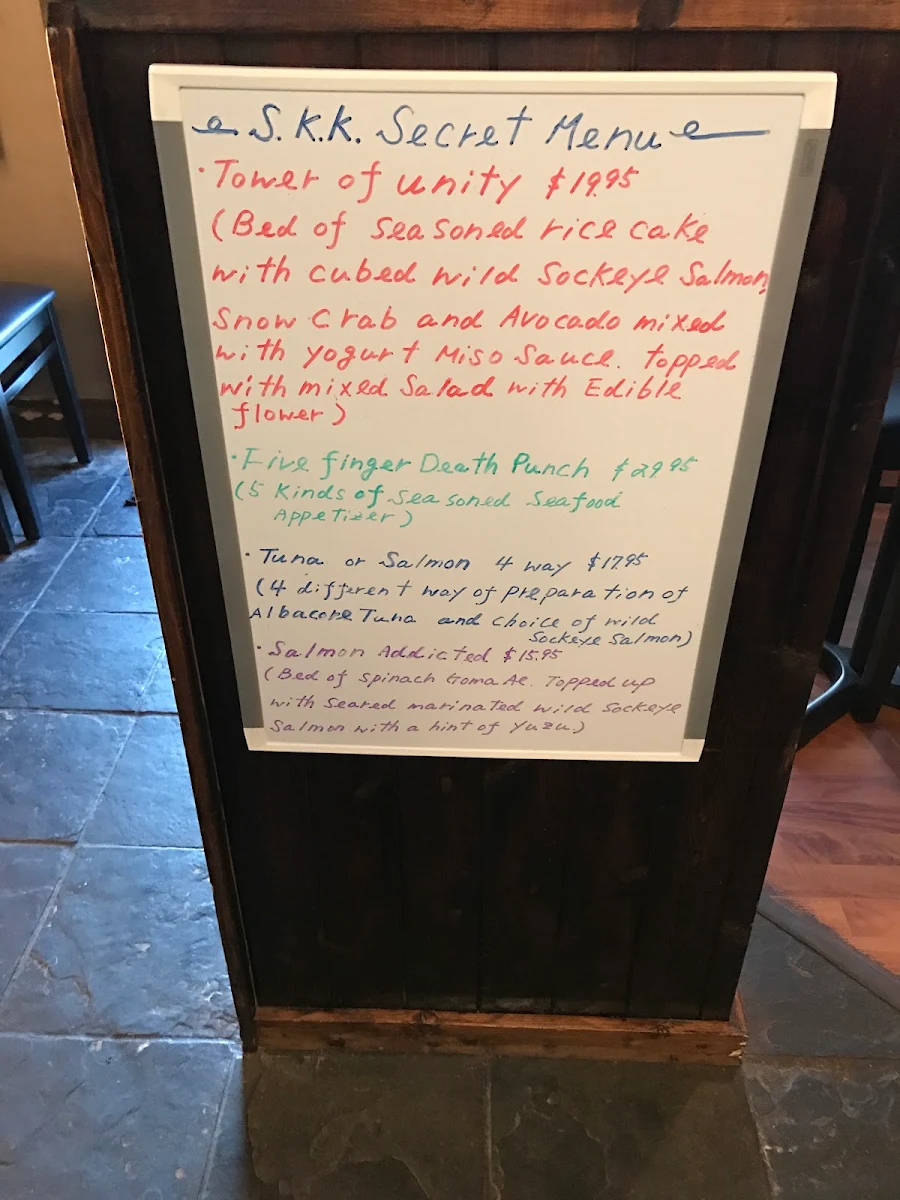 S.K.K. Secret Menu
· Tower of unity $19.95
(Bed of seasoned rice cake
with cubed wild Sockeye Salmon,
Snow Crab and Avocado mixed
with yogurt Miso Sauce. topped
with mixed Salad with Edible
flower)
· Five finger Death Punch $29.95
(5 Kinds of seasoned Seafood
Appetizer)
· Tuna or Salmon 4 way $17.95
(4 different way of preparation of
Albacore Tuna and choice of wild
Sockeye Salmon)
· Salmon Addicted $15.95
(Bed of spinach Goma Ae. Topped up
with seared marinated wild Sockeye
Salmon with a hint of Yuzu.)